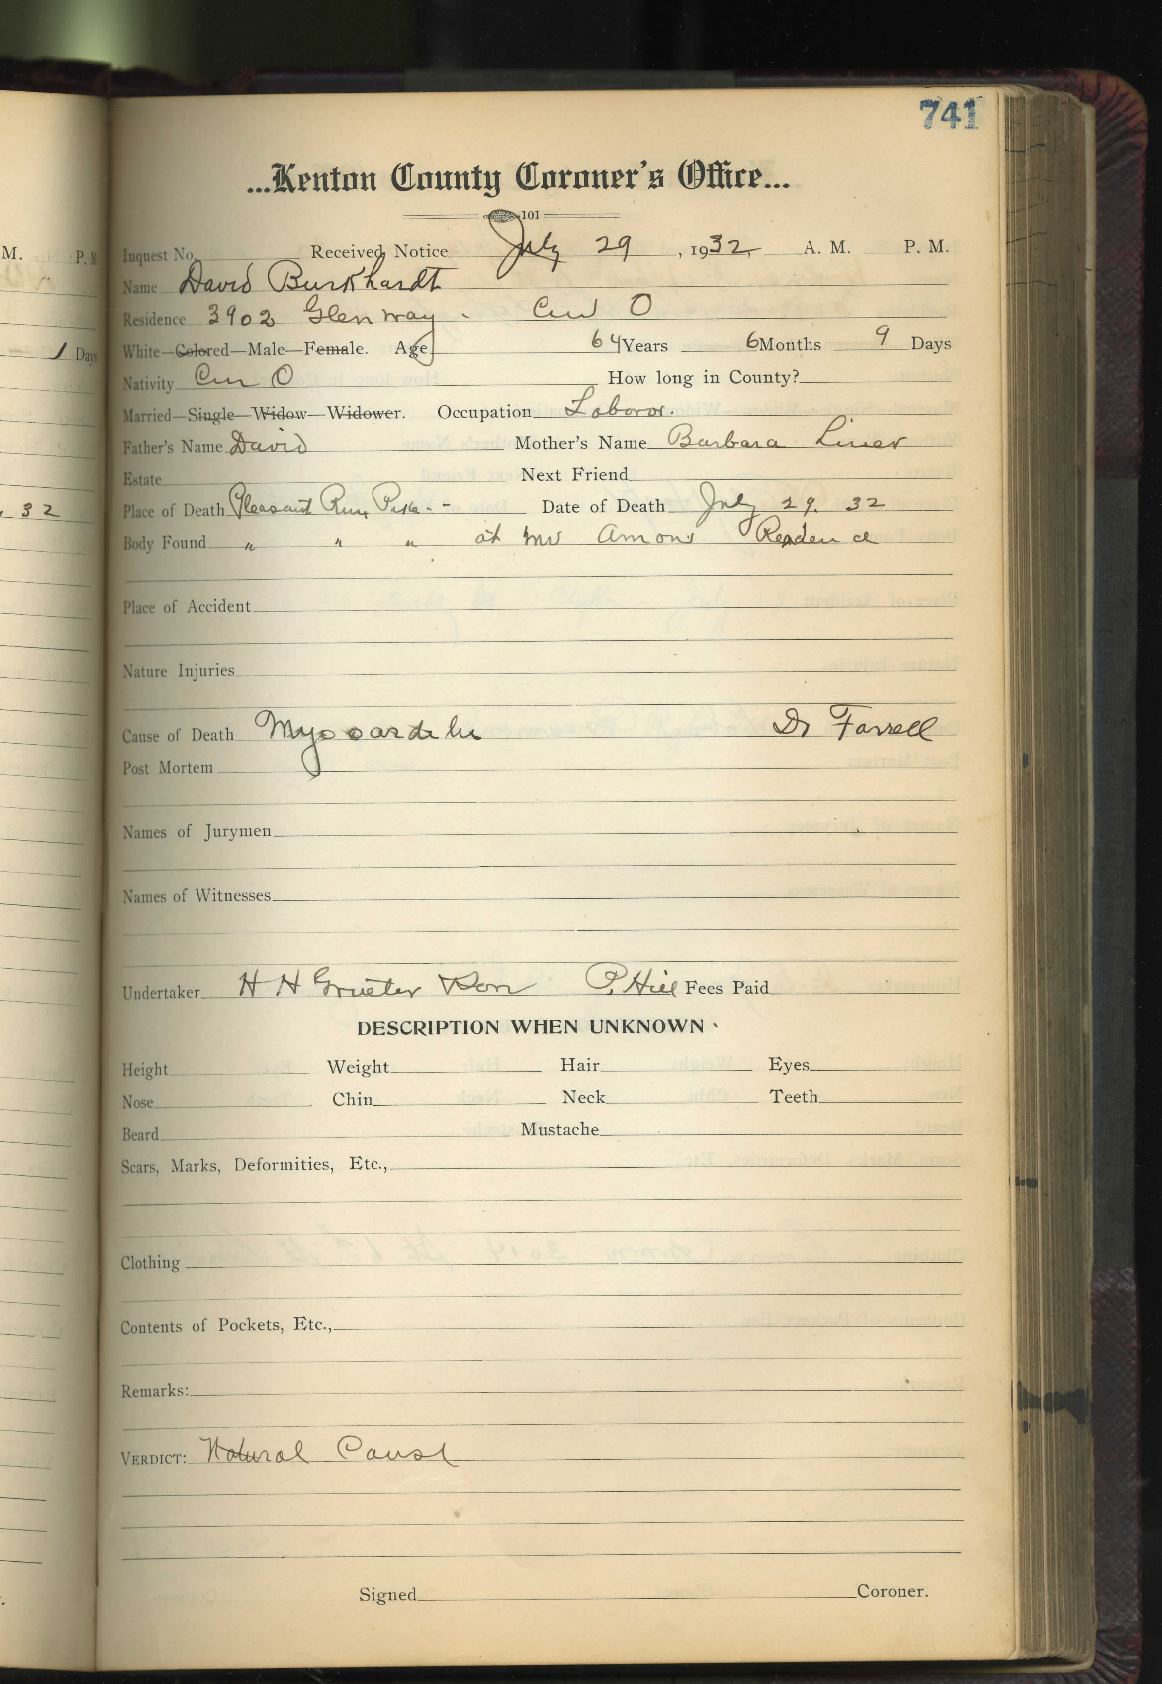 741
...Kenton County Coroner's Office...
101
Inquest No. Received Notice July 29, 1932 A. M. P. M.
Name David Burkhardt
Residence 3902 Glenway - Cin O
White—Colored—Male—Female. Age 64 Years 6 Months 9 Days
Nativity Cin O How long in County?
Married—Single—Widow—Widower. Occupation Laboror.
Father's Name David Mother's Name Barbara Liner
Estate Next Friend
Place of Death Pleasant Run Pike - - Date of Death July 29. 32
Body Found " " " at Mrs Amons Residence
Place of Accident
Nature Injuries
Cause of Death Myocarditis Dr Farrell
Post Mortem
Names of Jurymen
Names of Witnesses
Undertaker H H Grueter & Son P. Hill Fees Paid
DESCRIPTION WHEN UNKNOWN
Height Weight Hair Eyes
Nose Chin Neck Teeth
Beard Mustache
Scars, Marks, Deformities, Etc.,
Clothing
Contents of Pockets, Etc.,
Remarks:
VERDICT: Natural Cause
Signed Coroner.
M. P. M
1 Days
, 32